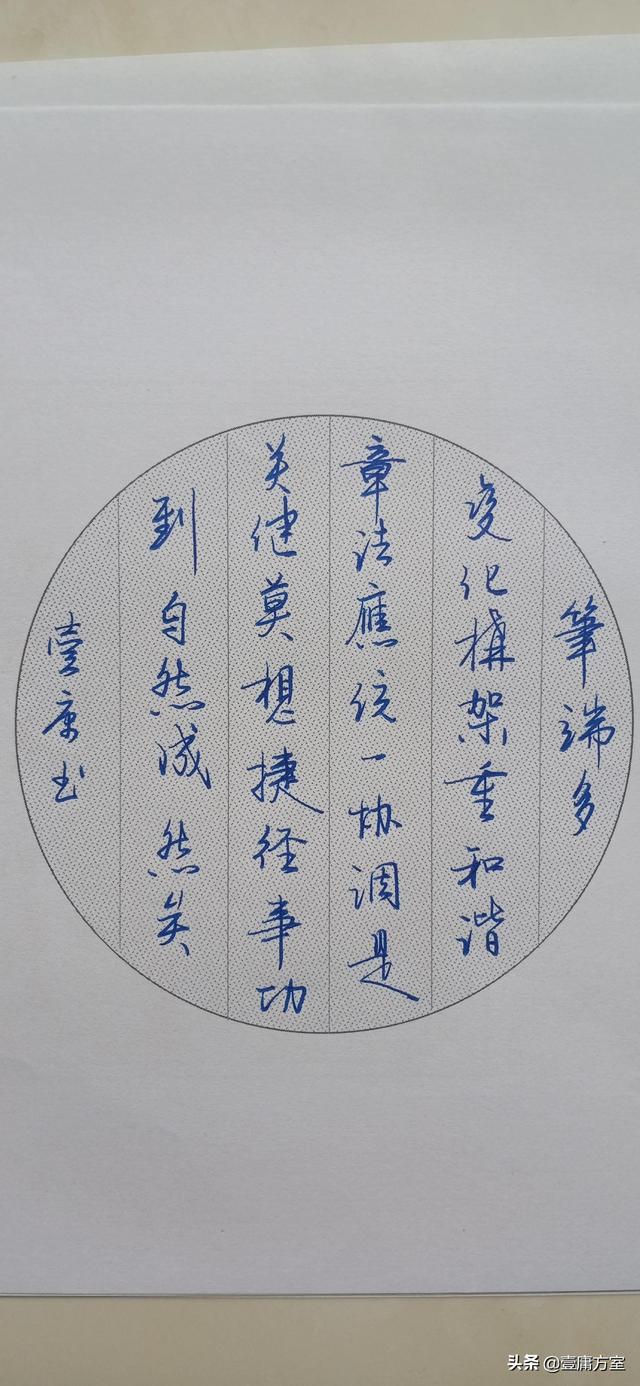 筆端多
变化構架重和谐
章法應统一协调是
关健莫想捷径事功
到自然成 然矣
壹庸书
头条 @壹庸方室